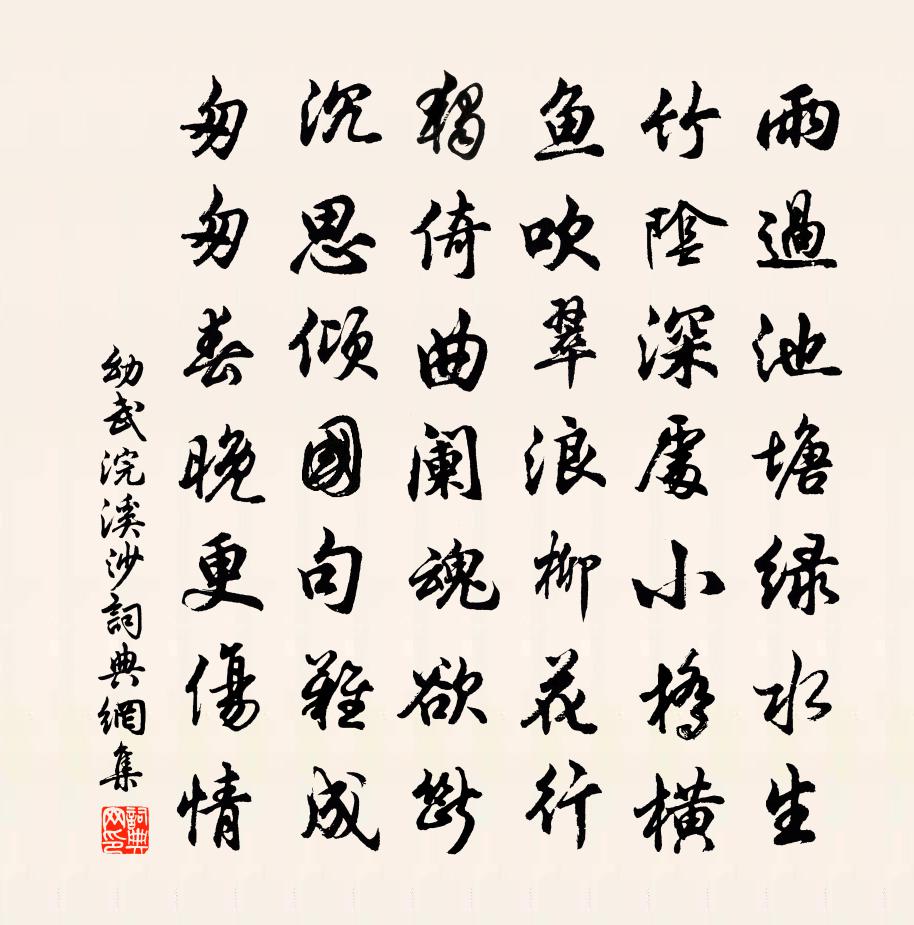 雨過池塘緑水生
竹陰深處小橋橫
魚吹翠浪柳花行
獨倚曲闌魂欲斷
沉思傾國句難成
匆匆春晚更傷情
幼武浣溪沙詞典網集
詞典
网印